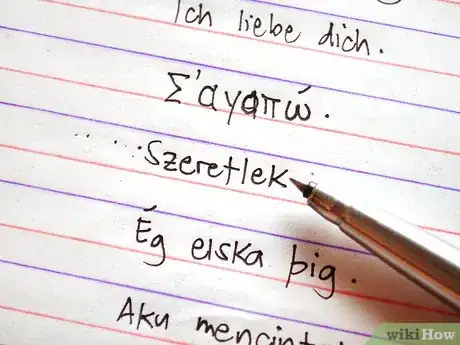 Ich liebe dich.
Σ'αγαπώ.
..... Szeretlek
Ég elska þig.
Aku
wikiHow